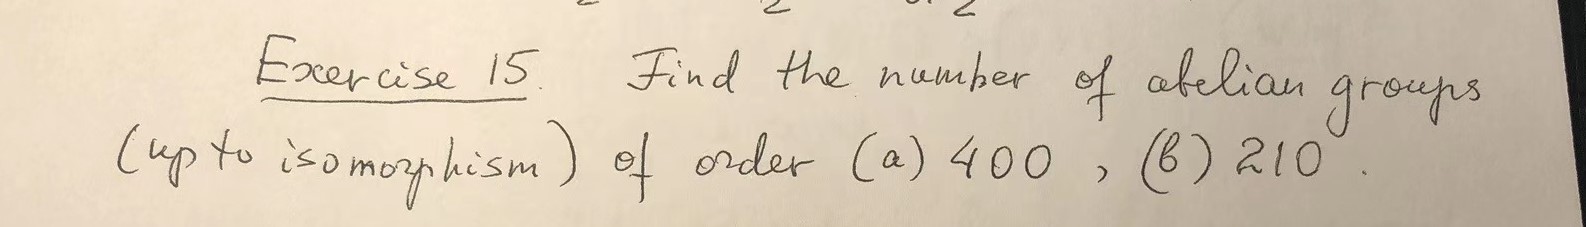 Exercise 15. Find the number of abelian groups
(up to isomorphism) of order (a) 400 , (b) 210 .